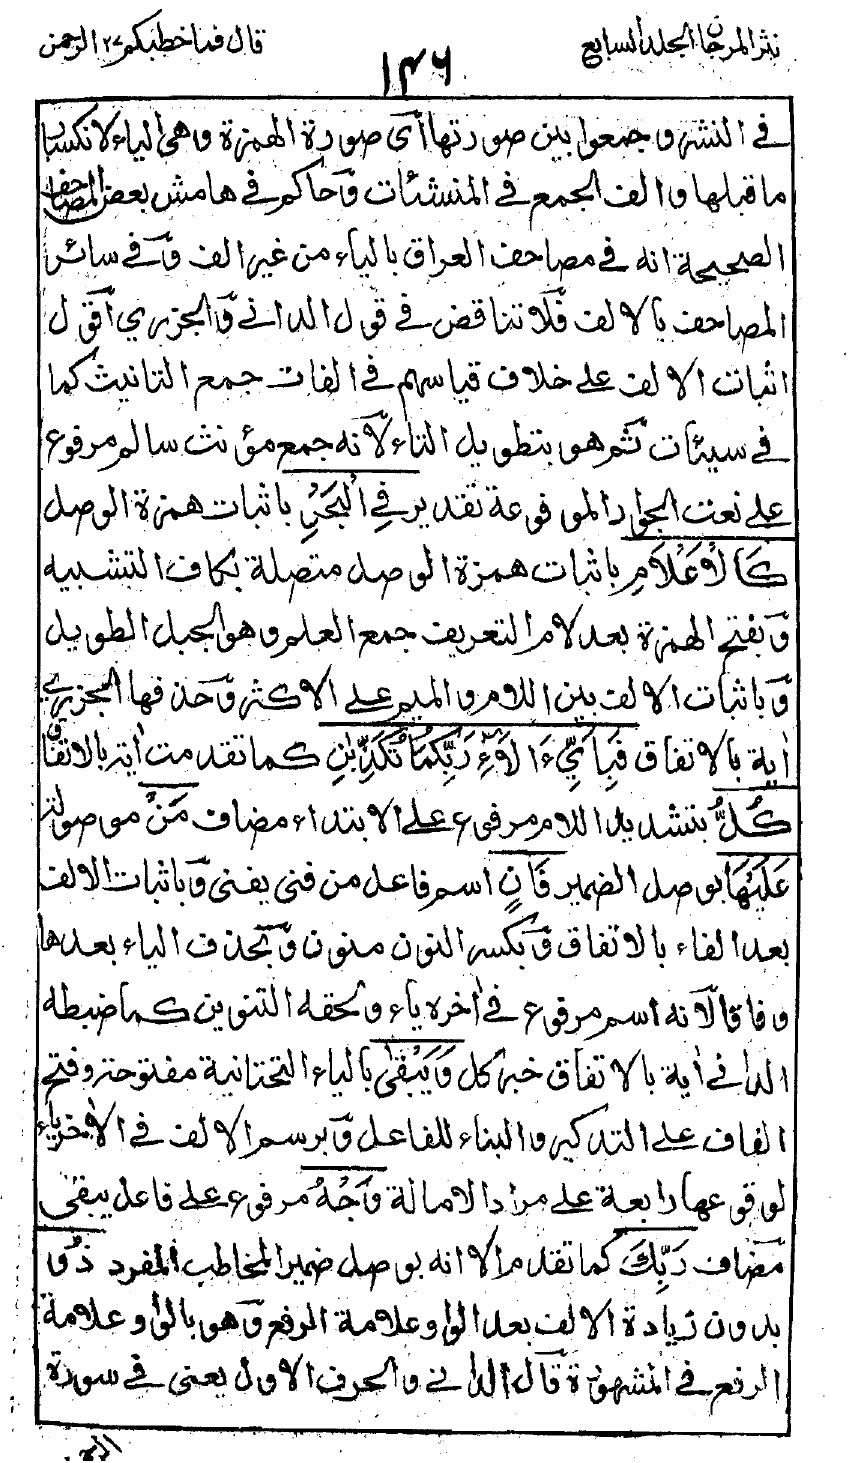 نثر المرجان المجلد السابع
قال فما خطبكم ٢٧ الرحمن
١٤٦
في النشر وجمعوا بين صورتها أى صورة الهمزة وهى الياء لانكسار
ما قبلها والف الجمع في المنشئات وحاكم في هامش بعض المصاحف
الصحيحة انه في مصاحف العراق بالياء من غير الف وفي سائر
المصاحف بالالف فلا تناقض في قول الداني والجزري أقول
اثبات الالف على خلاف قياسهم في الفات جمع التانيث كما
في سيئات ثم هو بتطويل التاء لانه جمع مؤنث سالم مرفوع
على نعت الجوار المرفوعة تقدير فِي الْبَحْرِ باثبات همزة الوصل
كَالْأَعْلَامِ باثبات همزة الوصل متصلة بكاف التشبيه
وبفتح الهمزة بعد لام التعريف جمع العلم وهو الجبل الطويل
وباثبات الالف بين اللام والميم على الاكثر وحذفها الجزري
اية بالاتفاق فَبِأَيِّ ءَالَآءِ رَبِّكُمَا تُكَذِّبٰنِ كما تقدمت اية بالاتفاق
كُلُّ بتشديد اللام مرفوع على الابتداء مضاف مَنْ موصولة
عَلَيْهَا بوصل الضمير فَانٍ اسم فاعل من فنى يفنى وباثبات الالف
بعد الفاء بالاتفاق وبكسر النون منون وبحذف الياء بعدها
وفاقا لانه اسم مرفوع في اٰخره ياء ولحقه التنوين كما ضبطه
الداني اٰية بالاتفاق خبر كل وَيَبْقٰى بالياء التحتانية مفتوحة وفتح
القاف على التذكير والبناء للفاعل وبرسم الالف في الاٰخر ياء
لوقوعها رابعة على مراد الامالة وَجْهُ مرفوع على فاعل يبقى
مضاف رَبِّكَ كما تقدم الا انه بوصل ضمير المخاطب المفرد ذُو
بدون زيادة الالف بعد الواو علامة الرفع وهو بالواو علامة
الرفع في المشهورة قال الداني والحرف الاول يعنى في سورة